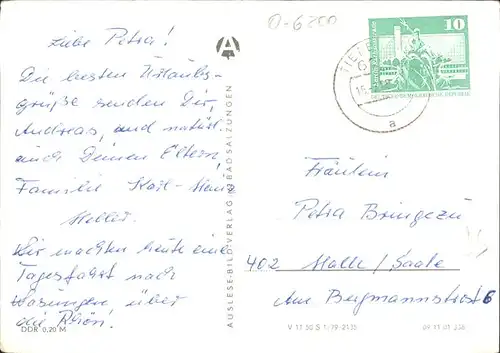 Liebe Petra!
Die besten Urlaubs-
grüße senden Dir,
Andreas, und natürl.
auch Deinen Eltern,
Familie Karl-Heinz
Müller.
Wir machten heute eine
Tagesfahrt nach
über
die Rhön!
DDR 0,20 M
AUSLESE-BILD-VERLAG BAD SALZUNGEN
O-6200
10
DEUTSCHE DEMOKRATISCHE REPUBLIK
a
Fräulein
Petra Bringezu
402 Halle/Saale
Am Bergmannstrost 6
V 11 50 S 1/79-2135